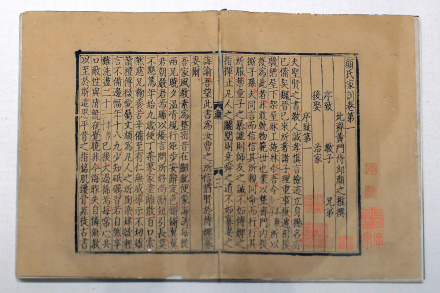 顔氏家訓卷第一
北齊黃門侍郎顔之推撰
序致 教子 兄弟
後娶 治家
序致第一
夫聖賢之書教人誠孝慎言檢迹立身揚名亦
已備矣魏晉已來所著諸子理重事複遞相模
斆猶屋下架屋牀上施牀爾吾今所以復
為此者非敢軌物範世也業以整齊門內提
撕子孫夫同言而信信其所親同命而行行其
所服禁童子之暴謔則師友之誡不如傅婢之
指揮止凡人之鬭鬩則堯舜之道不如寡妻之
誨諭吾望此書為汝曹之所信猶賢於傅婢寡
妻爾
吾家風教素為整密昔在齠齔便蒙誨誘每從
兩兄曉夕溫凊規行矩步安辭定色鏘鏘翼翼
若朝嚴君焉賜以優言問所好尚勵短引長莫
不懇篤年始九歲便丁荼蓼家塗離散百口索
然慈兄鞠養苦辛備至有仁無威導示不切雖
讀禮傳微愛屬文頗為凡人之所陶染肆欲輕
言不備邊幅年十八九少知砥礪習若自然卒
難洗盪二十已後大過稀焉每常心共
口敵性與情競夜覺曉非今悔昨失自憐無教
以至於斯追思平昔之指銘肌鏤骨非徒古書